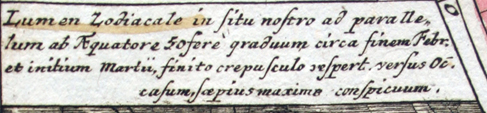 Lumen Zodiacale in situ nostro ad paralle,
lum ab Æquatore 50 fore graduum circa finem Febr.
et initium Martii, finito crepusculo vespert. versus Oc,
casum, sæpius maxime conspicuum.